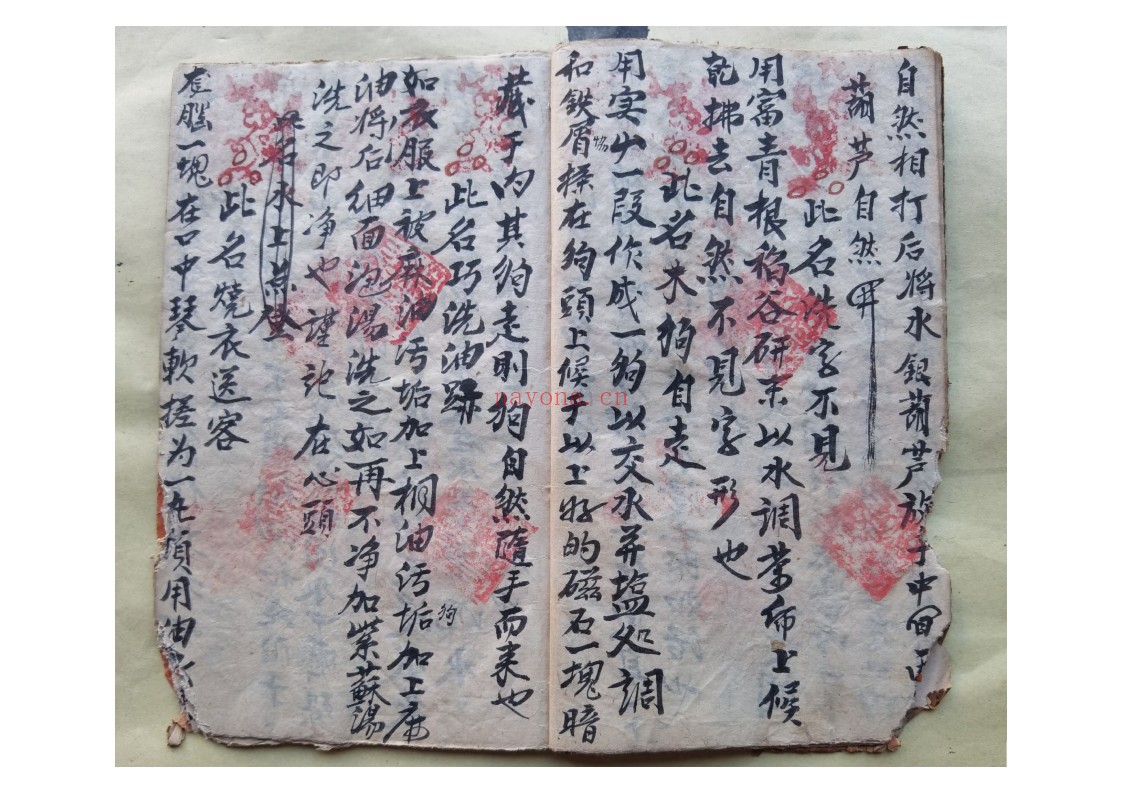 自然相打后将水银葫芦放于中间
葫芦自然开
此名洗字不见
用富青根稻谷研末以水调葉师上候
乾拂去自然不見字形也
此名木狗自走
用实少一段作成一狗以交水并塩处調
和鉄屑搽在狗頭上候手以上好的磁石一塊暗
物
藏于内其狗走則狗自然隨手而来也
此名巧洗油跡
如衣服上被麻油污垢加上桐油污垢加上麻
狗
油将后细面泡湯洗之如再不净加紫蘇湯
洗之即净也謹記在心頭
此名燒衣送客
脳一塊在口中琴軟搓为一丸預用油
nayona.cn